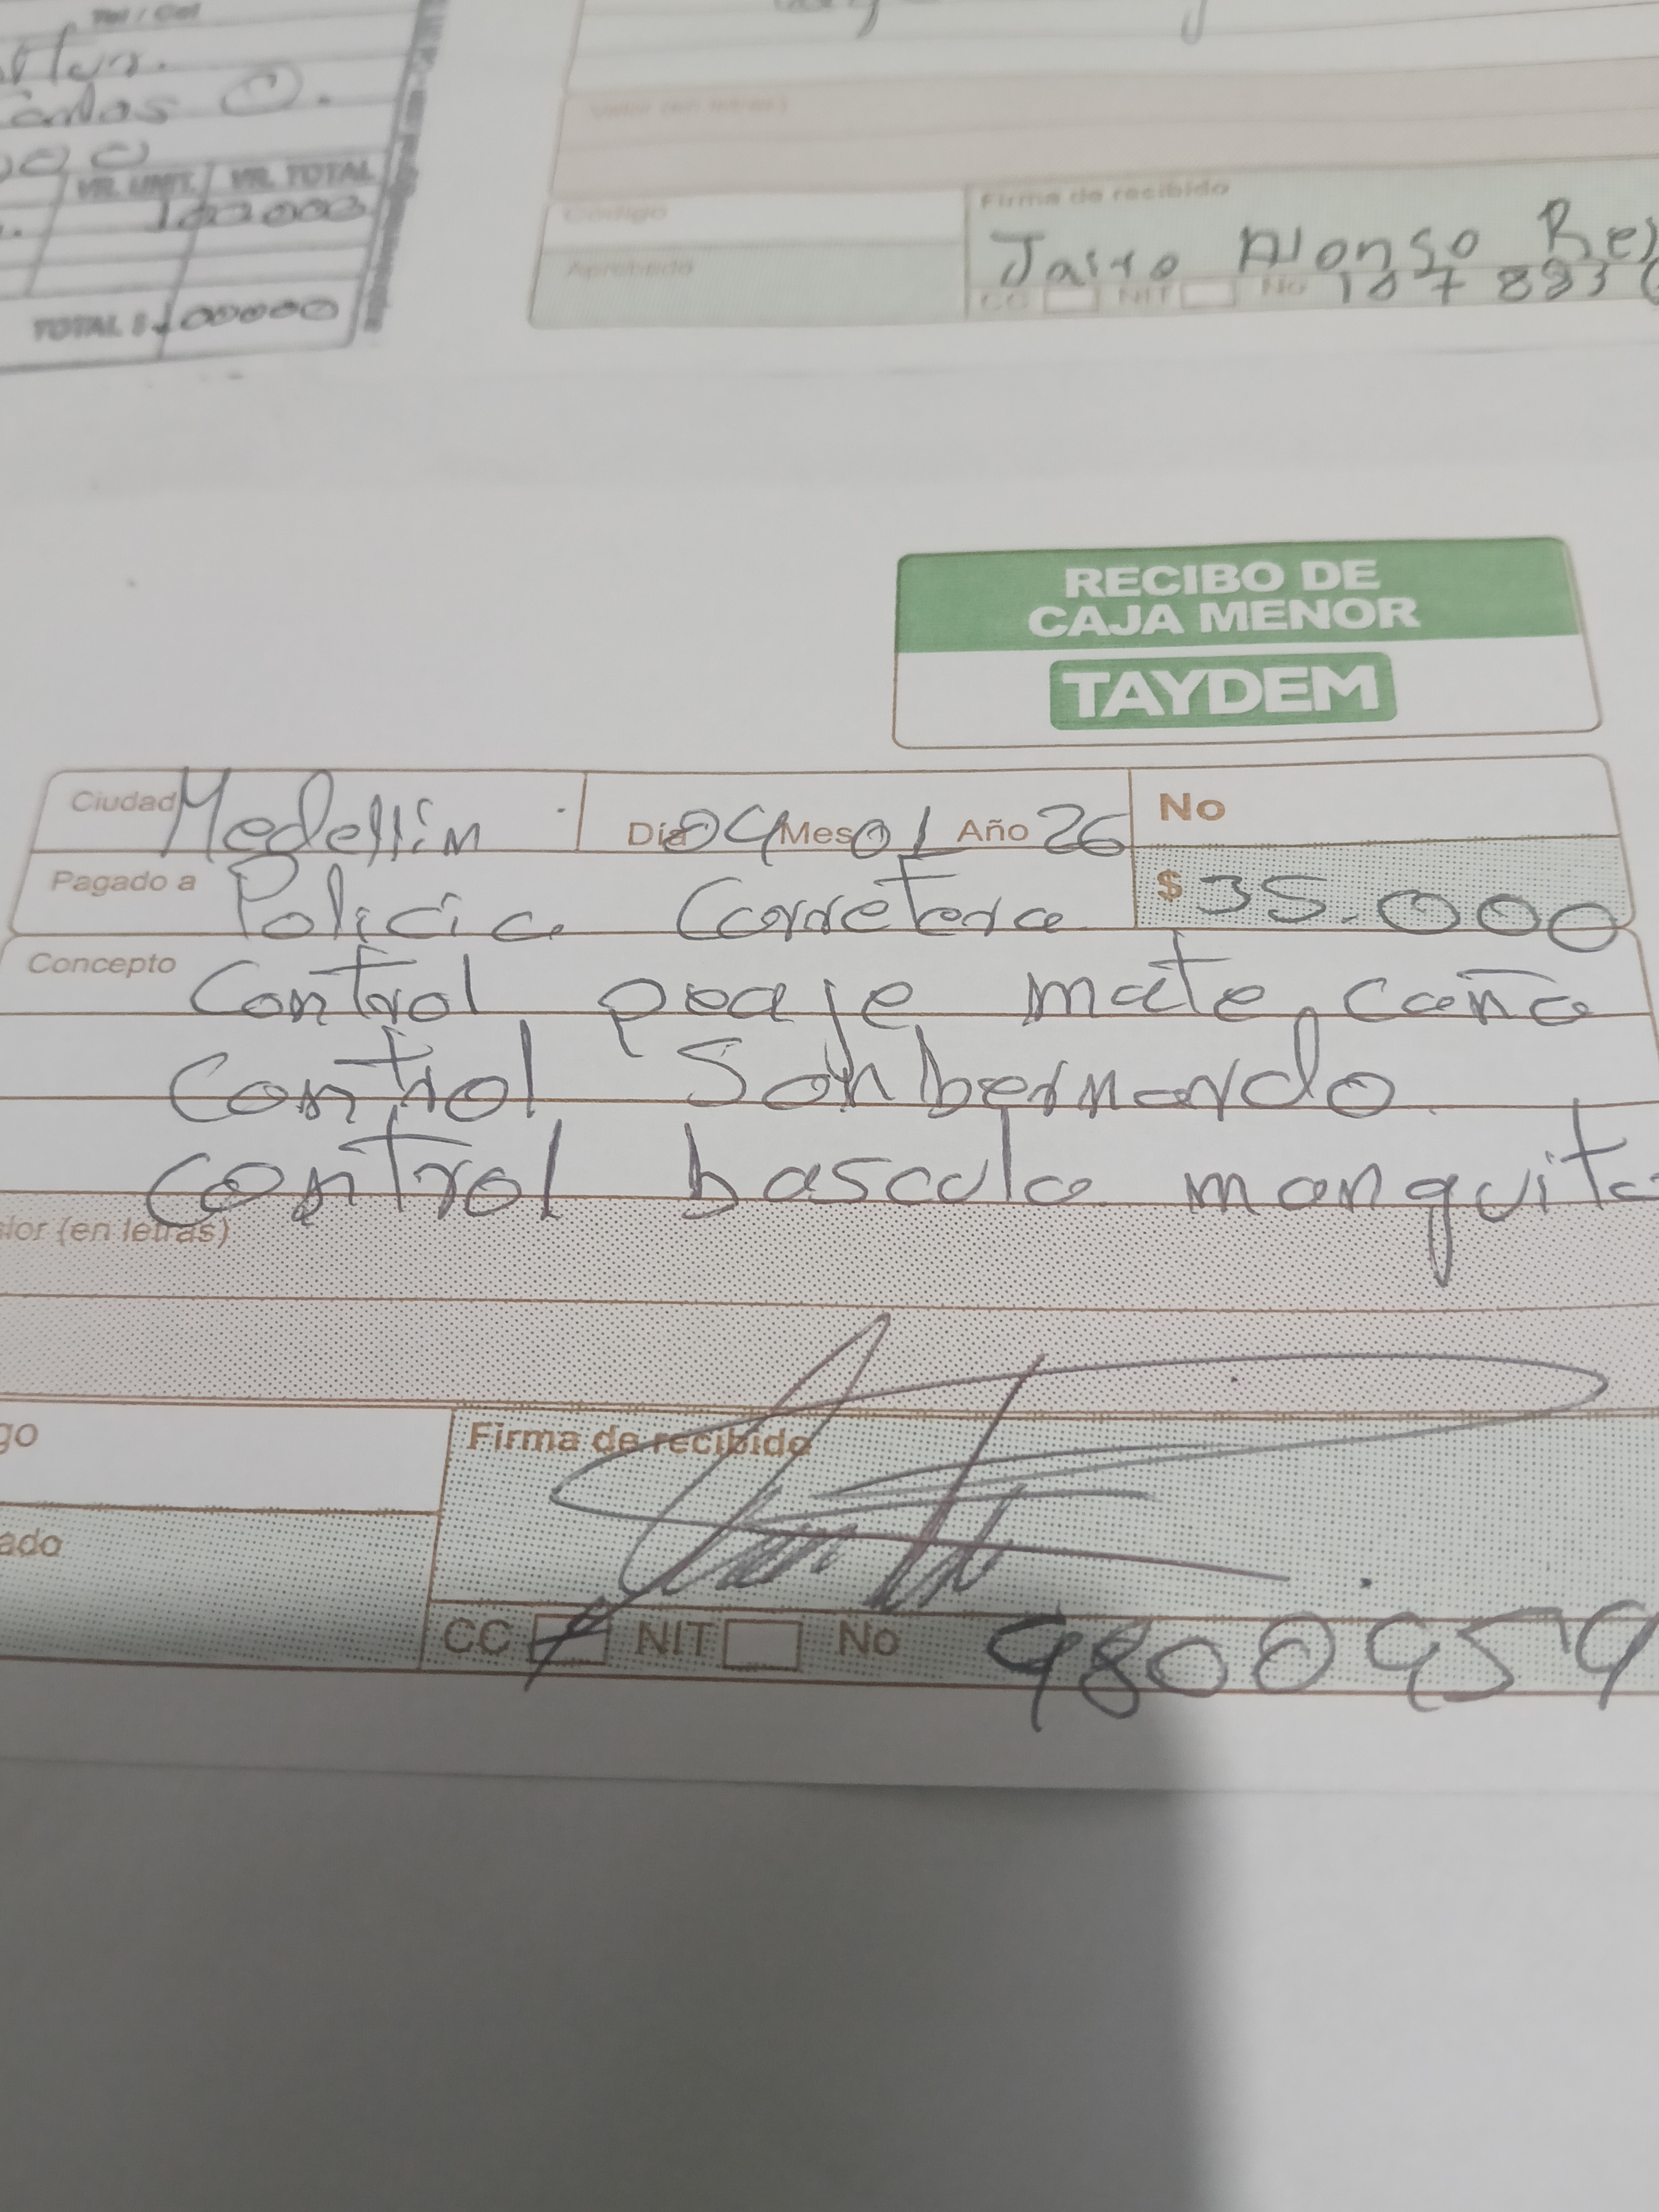 Tel / Cel
VR. UNIT. VR. TOTAL
100000
TOTAL $ 100000
Valor (en letras)
Código
Firma de recibido
Jairo Alonso
Aprobado
CC NIT No 107883
RECIBO DE
CAJA MENOR
TAYDEM
Ciudad Medellin Día 04 Mes 01 Año 26 No
Pagado a Policia Carretera $ 35.000
Concepto Control peaje mate caña
Control San bernardo
Control bascula manguito
lor (en letras)
go
Firma de recibido
ado
CC NIT No 9800959